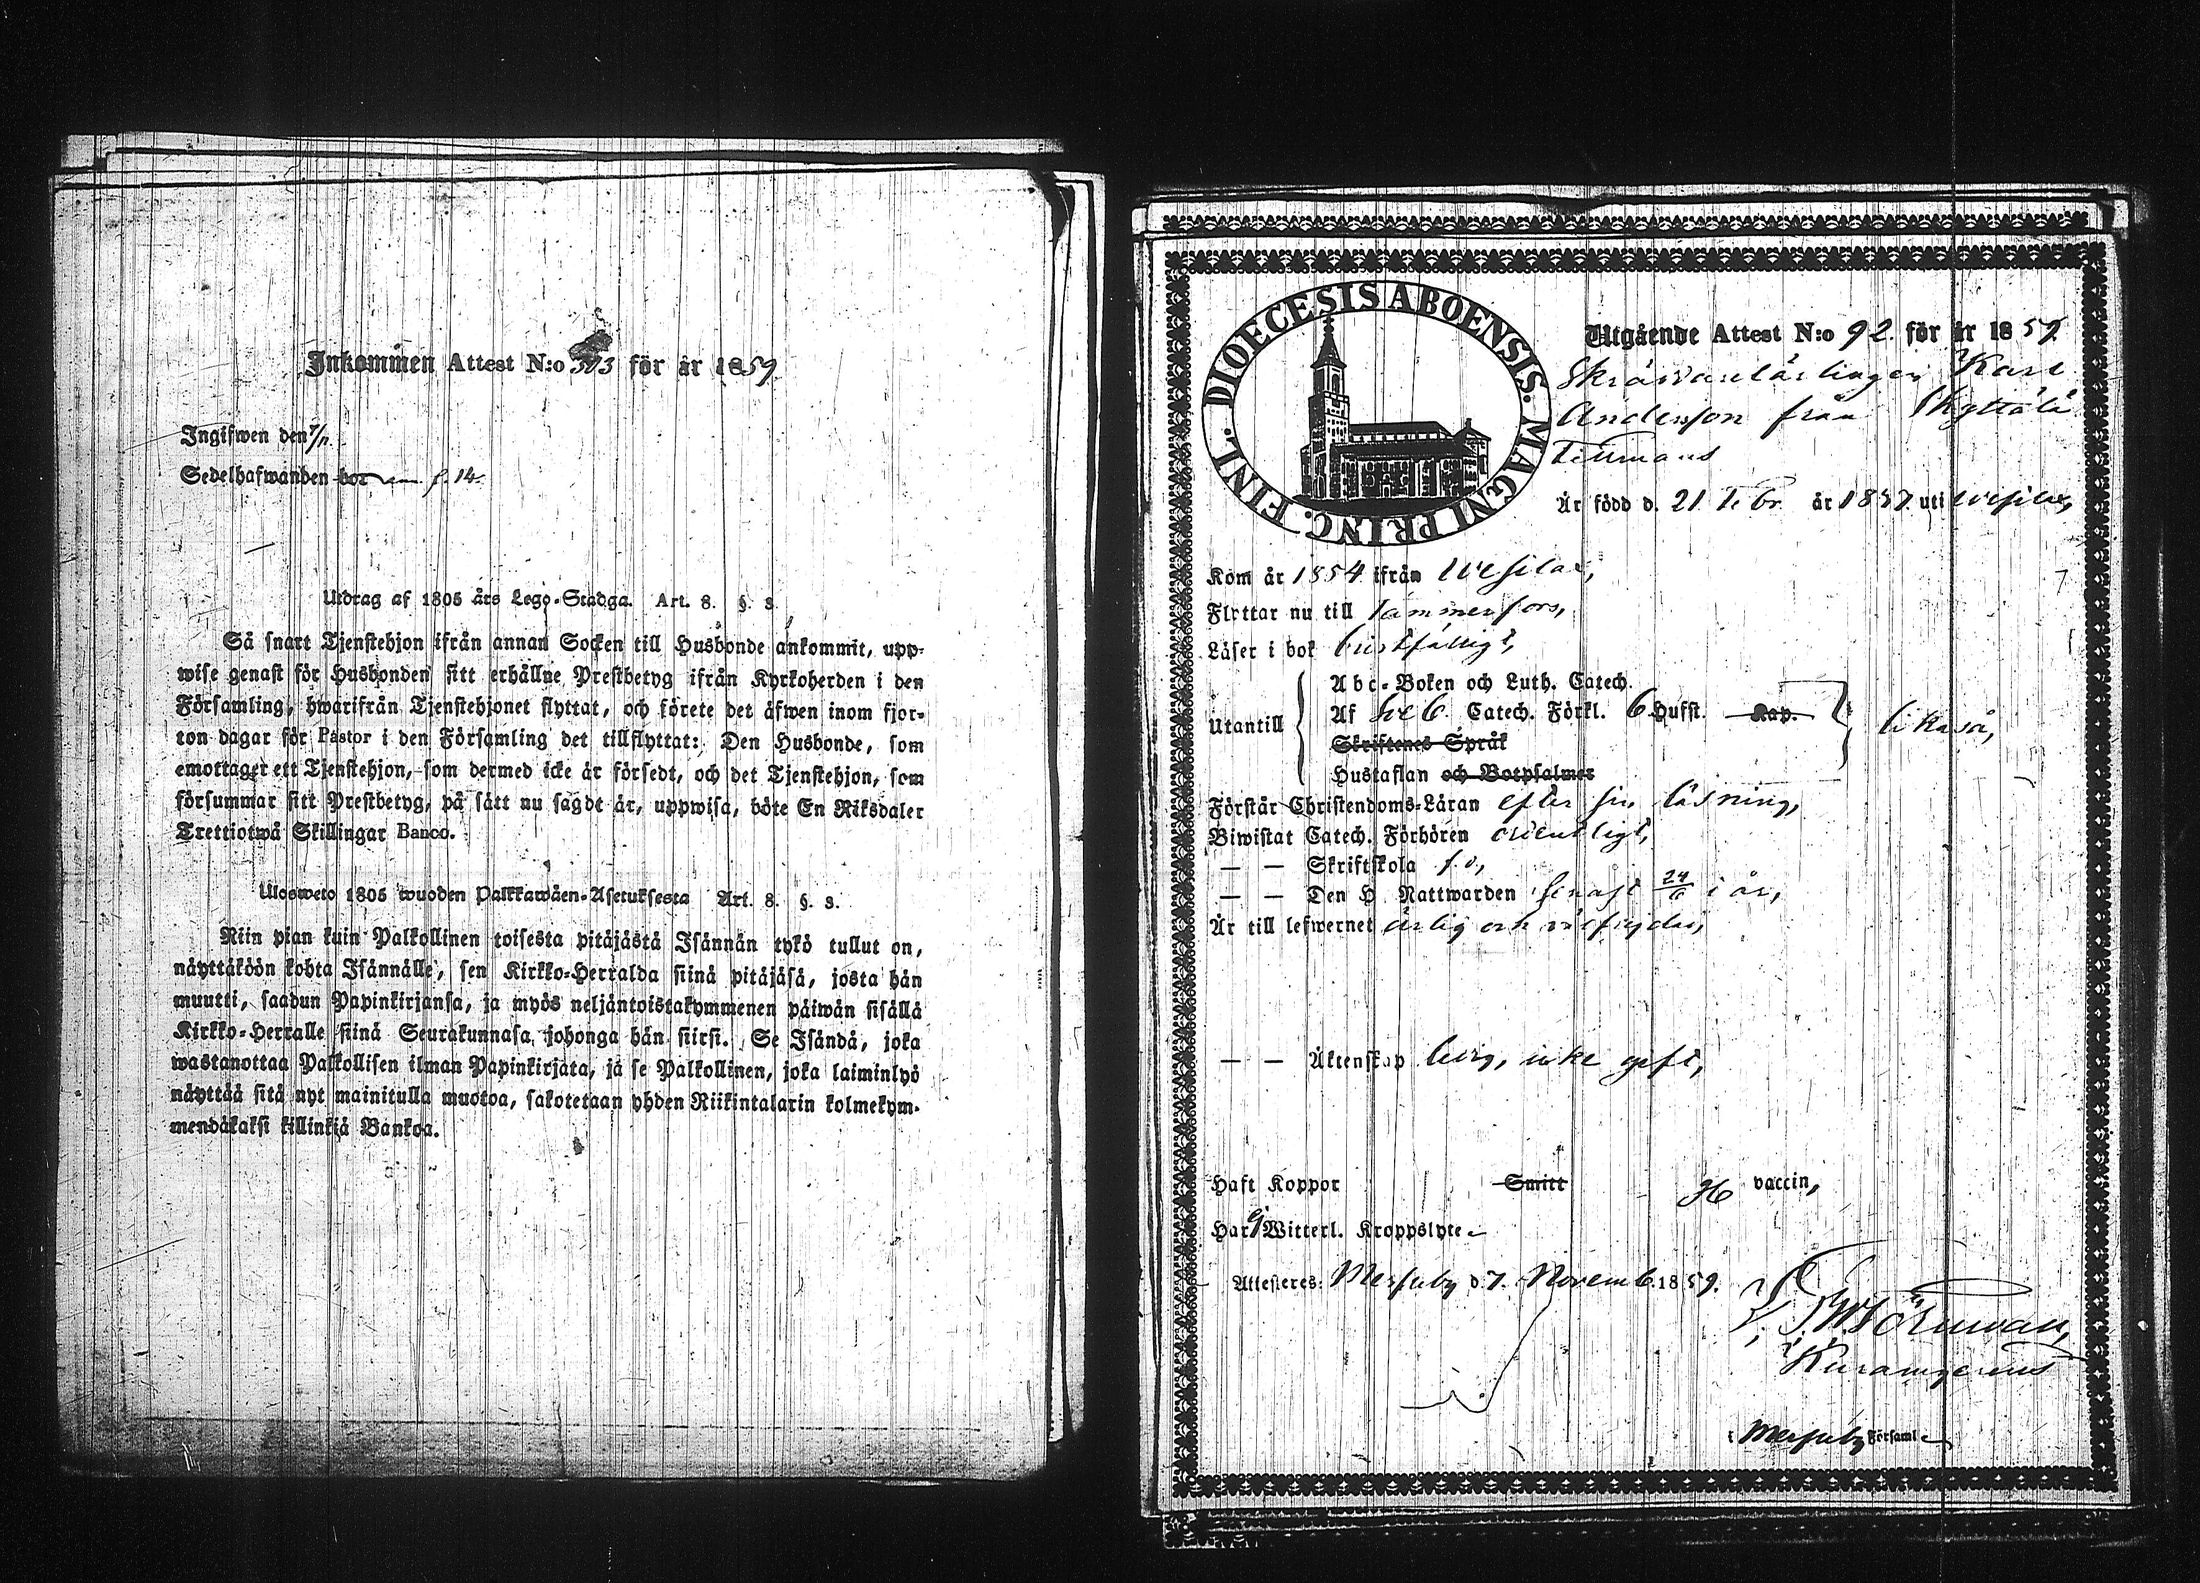 Inkommen Attest N:o 503 för år 1859
Ingifwen den 7/11.
Sedelhafwanden bor f. 14.
Utdrag af 1805 års Lego-Stadga. Art. 8. §. 3.
Så snart Tjenstehjon ifrån annan Socken till Husbonde ankommit, upp-
wise genast för Husbonden sitt erhållne Prestbetyg ifrån Kyrkoherden i den
Församling, hwarifrån Tjenstehjonet flyttat, och förete det äfwen inom fjor-
ton dagar för Pastor i den Församling det tillflyttat: Den Husbonde, som
emottager ett Tjenstehjon, som dermed icke är försedt, och det Tjenstehjon, som
försummar sitt Prestbetyg, på sätt nu sagdt är, uppwisa, böte En Riksdaler
Trettiotwå Skillingar Banco.
Ulosweto 1805 wuoden Palkkawäen-Asetuksesta Art. 8. §. 3.
Niin pian kuin Palkollinen toisesta pitäjästä Isännän tykö tullut on,
näyttäköön kohta Isännälle, sen Kirkko-Herralda siinä pitäjäsä, josta hän
muutti, saadun Papinkirjansa, ja myös neljäntoistakymmenen päiwän sisällä
Kirkko-Herralle siinä Seurakunnasa, johonga hän siirsi. Se Isändä, joka
wastanottaa Palkollisen ilman Papinkirjata, ja se Palkollinen, joka laiminlyö
näyttää sitä nyt mainitulla muotoa, sakotetaan yhden Riikintalarin kolmekym-
mendäkaksi killinkiä Bankoa.
DIOECESIS ABOENSIS. MAGNI PRINC. FINL.
Utgående Attest N:o 92 för år 1859.
Skräddarelärlingen Karl
Anderson från Skyttälä
Tillmans
Är född d. 21 Febr. år 1837 uti Wesilax,
Kom år 1854 ifrån Wesilax,
Flyttar nu till Tammerfors,
Läser i bok bristfälligt,
Utantill
Abc-Boken och Luth. Catech.
Af Catech. Förkl. 6 Hufst. Kap.
Skriftenes Språk
Hustaflan och Botpsalmer
likaså,
Förstår Christendoms-Läran efter sin läsning,
Biwistat Catech. Förhören ordentligt,
— — Skriftskola f. o.,
— — Den H Nattwarden senast 24/6 i år,
Är till lefwernet ärlig och välfrejdad,
— — Äktenskap ledig, icke gift,
Haft Koppor Smitt vaccin,
Har ej Witterl. Kroppslyte
Attesteres: Messuby d. 7. Novemb. 1859.
i Messuby Församl.